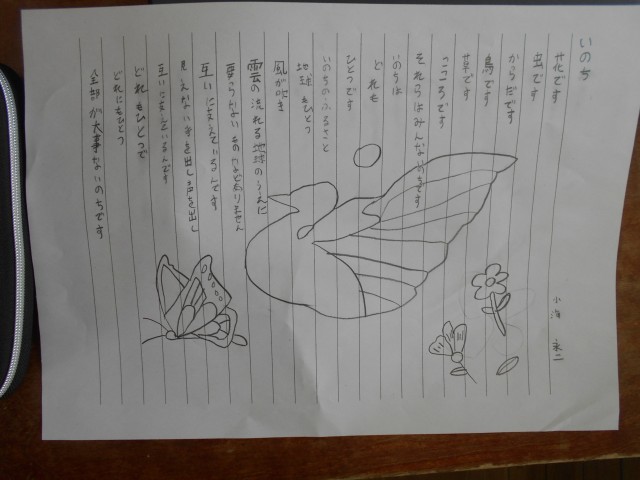 いのち
小海 永二
花です
虫です
からだです
鳥です
草です
こころです
それらはみんないのちです
いのちは
どれも
ひとつです
いのちのふるさと
地球もひとつ
風が吹き
雲の流れる地球のうえに
要らないものなどありません
互いに支えているんです
見えない手を出し声を出し
互いに支えているんです
どれもひとつで
どれにもひとつ
全部が大事ないのちです